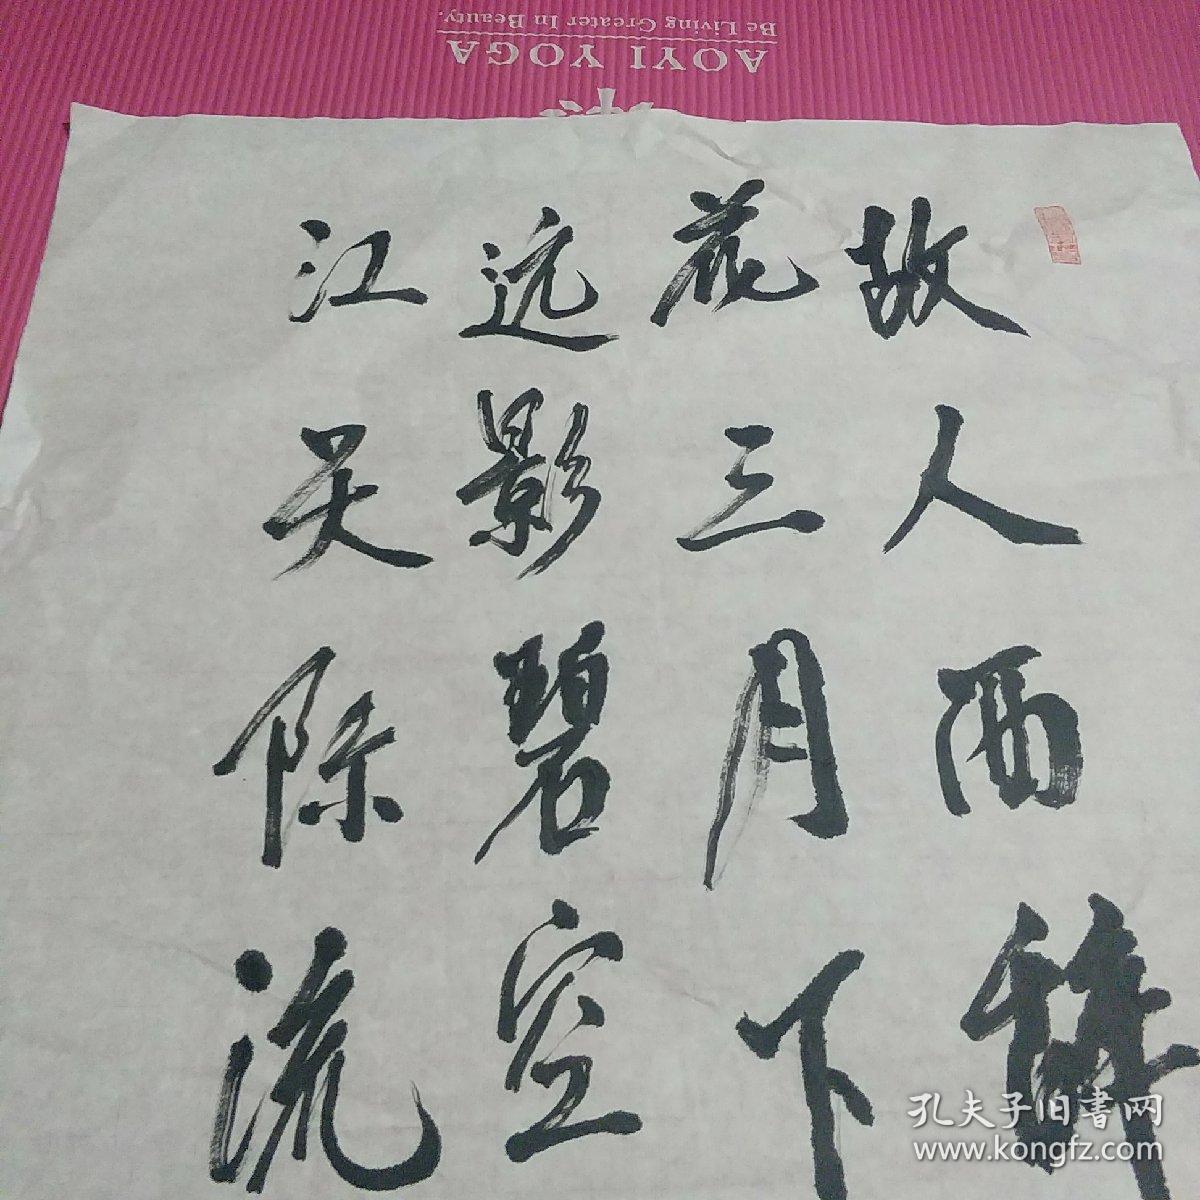 Be Living Greater In Beauty.
AOYI YOGA
故人西辞
花三月下
远影碧空
江天际流
孔夫子旧书网
www.kongfz.com